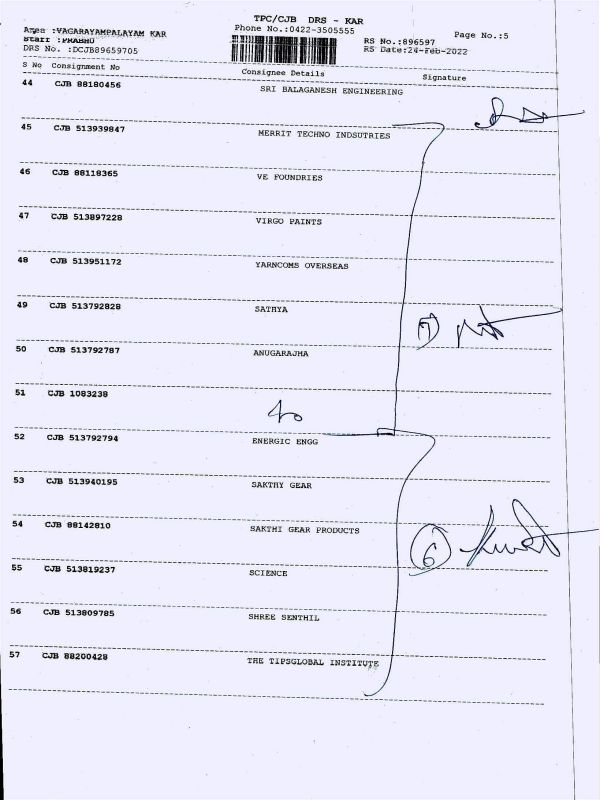 TPC/CJB DRS - KAR
Area :VAGARAYAMPALAYAM KAR
Phone No.:0422-3505555
Page No.:5
Staff :PRABHU
RS No.:896597
DRS No. :DCJB89659705
RS Date:24-Feb-2022
S No Consignment No Consignee Details Signature
44 CJB 88180456 SRI BALAGANESH ENGINEERING
45 CJB 513939847 MERRIT TECHNO INDSUTRIES
46 CJB 88118365 VE FOUNDRIES
47 CJB 513897228 VIRGO PAINTS
48 CJB 513951172 YARNCOMS OVERSEAS
49 CJB 513792828 SATHYA
7
50 CJB 513792787 ANUGARAJHA
51 CJB 1083238
52 CJB 513792794 ENERGIC ENGG
53 CJB 513940195 SAKTHY GEAR
54 CJB 88142810 SAKTHI GEAR PRODUCTS
6
55 CJB 513819237 SCIENCE
56 CJB 513809785 SHREE SENTHIL
57 CJB 88200428 THE TIPSGLOBAL INSTITUTE